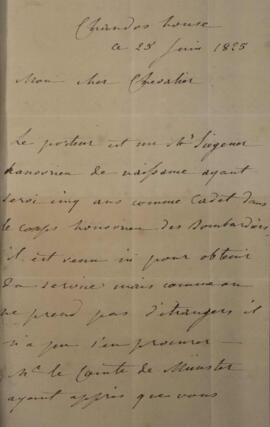 Chandos house
ce 25 Juin 1825
Mon cher Chevalier
Le porteur est un Mr
hanovrien de naissance ayant
servi cinq ans comme Cadet dans
le corps hanovrien des Bombardiers
il est venu ici pour obtenir
du service mais comme on
ne prend pas d'étrangers il
n'a pu s'en procurer
Mr le Comte de Münster
ayant appris que vous